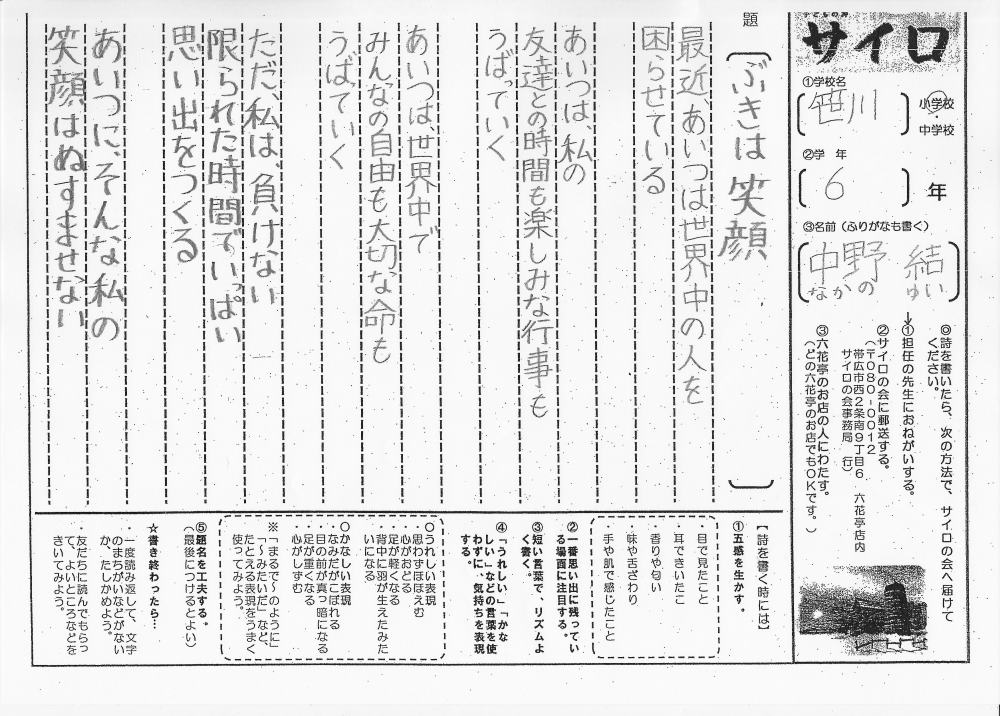 サイロ
①学校名
笹川
小学校
中学校
②学年
6
年
③名前（ふりがなも書く）
中野 結
なかの ゆい
◎詩を書いたら、次の方法で、サイロの会へ届けて
ください。
①担任の先生におねがいする。
②サイロの会に郵送する。
（〒080-0012
帯広市西2条南9丁目6 六花亭店内
サイロの会事務局 行）
③六花亭のお店の人にわたす。
（どの六花亭のお店でもOKです。）
題
ぶきは笑顔
最近、あいつは世界中の人を
困らせている
あいつは、私の
友達との時間も楽しみな行事も
うばっていく
あいつは、世界中で
みんなの自由も大切な命も
うばっていく
ただ、私は、負けない
限られた時間でいっぱい
思い出をつくる
あいつに、そんな私の
笑顔はぬすませない
【詩を書く時には】
①五感を生かす。
・目で見たこと
・耳できいたこ
・香りや匂い
・味や舌ざわり
・手や肌で感じたこと
②一番思い出に残ってい
る場面に注目する。
③短い言葉で、リズムよ
く書く。
④「うれしい」「かな
しい」などの言葉を使
わずに、気持ちを表現
する。
○うれしい表現
・思わずほほえむ
・心がおどる
・足が軽くなる
・背中に羽が生えたみた
いになる
○かなしい表現
・なみだがこぼれる
・目の前が真っ暗になる
・足が重くなる
・心がしずむ
※「まるで〜のように」
「〜みたいだ」など、
たとえる表現をうまく
使ってみよう。
⑤題名を工夫する。
（最後につけるとよい）
★書き終わったら…
・一度読み返して、文字
のまちがいなどがない
か、たしかめよう。
・友だちに読んでもらっ
て、よいところなどを
きいてみよう。